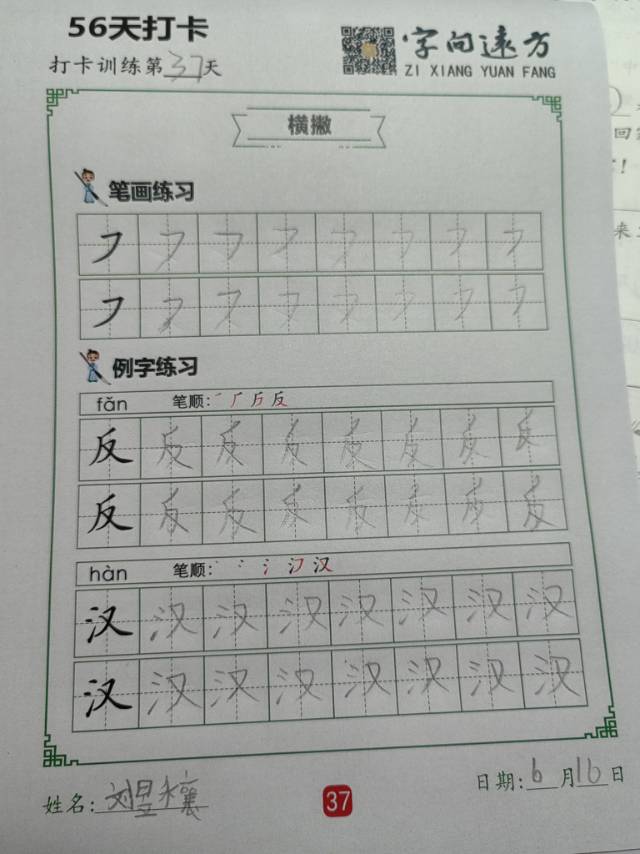 56天打卡
打卡训练第37天
字向远方
ZI XIANG YUAN FANG
横撇
笔画练习
㇇ ㇇ ㇇ ㇇ ㇇ ㇇ ㇇ ㇇
㇇ ㇇ ㇇ ㇇ ㇇ ㇇ ㇇ ㇇
例字练习
fǎn 笔顺: 反
反 反 反 反 反 反 反 反
反 反 反 反 反 反 反 反
hàn 笔顺: 汉
汉 汉 汉 汉 汉 汉 汉 汉
汉 汉 汉 汉 汉 汉 汉 汉
姓名: 刘昱穰
37
日期: 6月16日
回
!
来